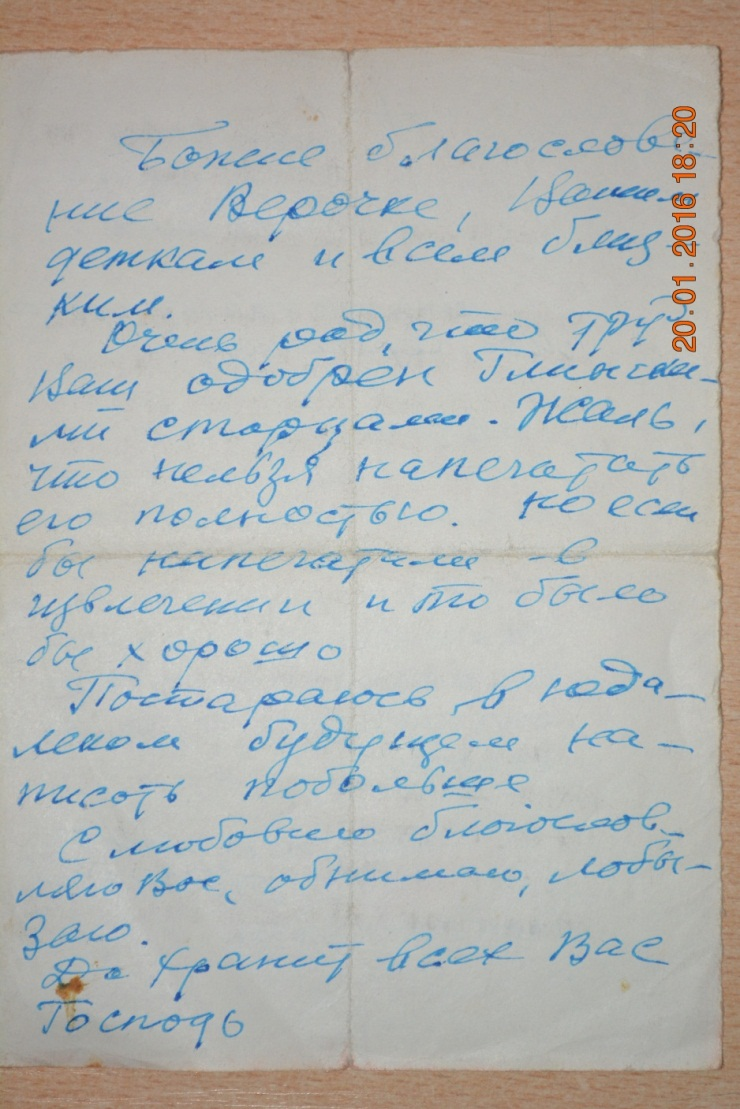 Божие благослове-
ние Верочке, Вашим
деткам и всем близ-
ким.
Очень рад, что труд
Ваш одобрен Глински-
ми старцами. Жаль,
что нельзя напечатать
его полностью. Но если
бы напечатали в
извлечении и то было
бы хорошо
Постараюсь в неда-
леком будущем на-
писать побольше
С любовию благослов-
ляю Вас, обнимаю, лобы-
заю.
Да хранит всех Вас
Господь
20.01.2016 18:20